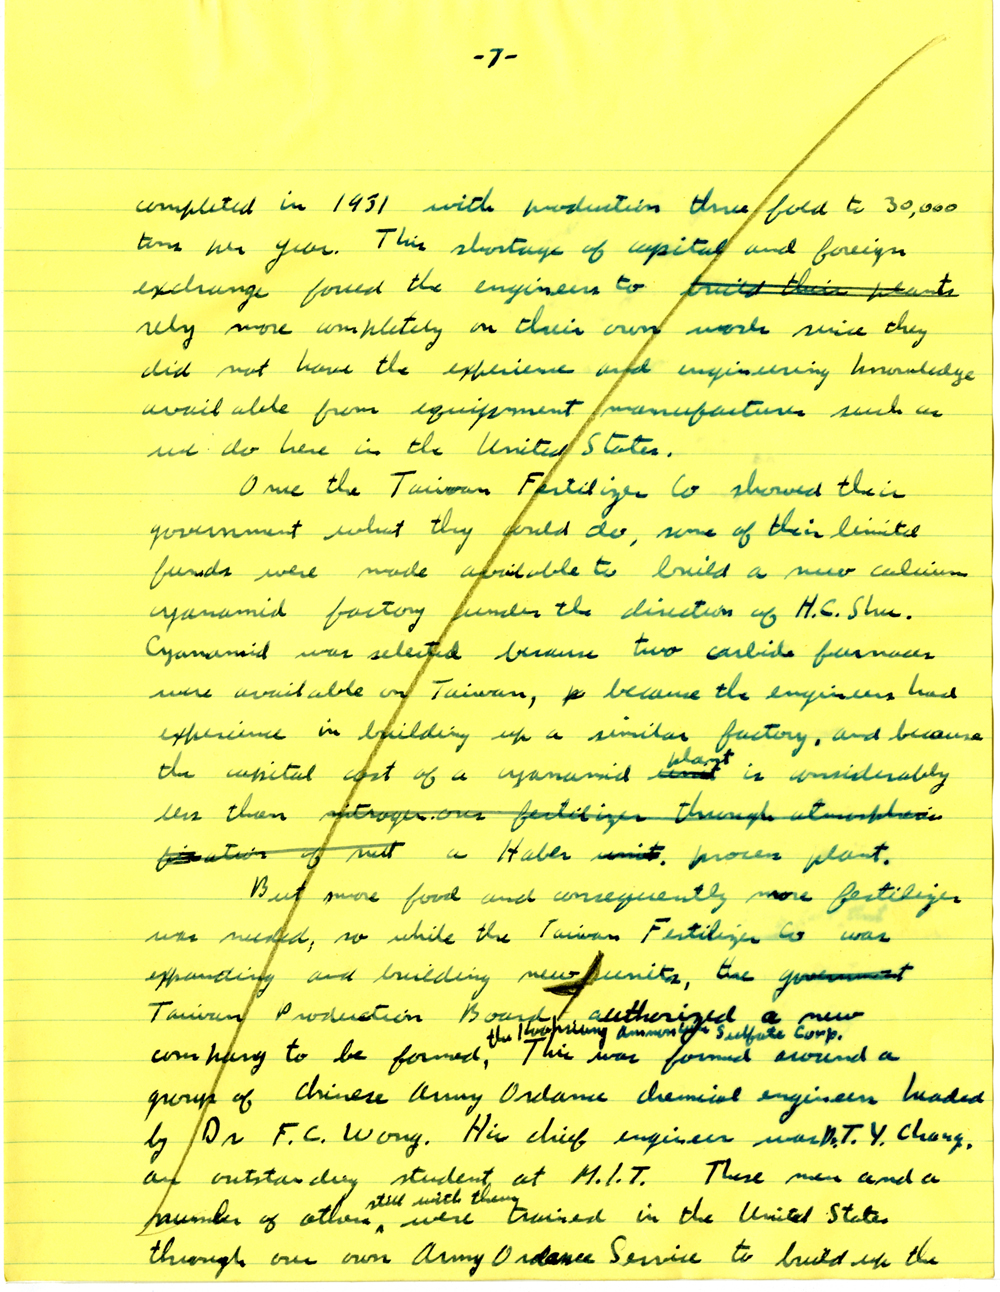 -7-
completed in 1931 with production three fold to 30,000
tons per year. This shortage of capital and foreign
exchange forced the engineers to build their plants
rely more completely on their own work since they
did not have the experience and engineering knowledge
available from equipment manufacturers such as
we do here in the United States.
Once the Taiwan Fertilizer Co showed their
government what they could do, some of their limited
funds were made available to build a new calcium
cyanamid factory under the direction of H.C. Shu.
Cyanamid was selected because two carbide furnaces
were available on Taiwan, because the engineers had
experience in building up a similar factory, and because
plant
the capital cost of a cyanamid unit is considerably
less than nitrogenous fertilizer through atmospheric
fixation of a Haber unit. process plant.
But more food and consequently more fertilizer
was needed, so while the Taiwan Fertilizer Co was
expanding and building new units, the government
Taiwan Production Board authorized a new
the Kaohsiung Ammonium Sulfate Corp.
company to be formed, This was formed around a
group of Chinese Army Ordance chemical engineers headed
by Dr F.C. Wong. His chief engineer was Dr. T. Y. Chang,
an outstanding student at M.I.T. These men and a
still with them
number of others, were trained in the United States
through our own Army Ordance Service to build up the